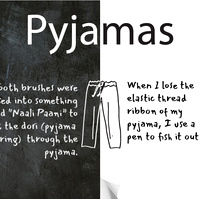 Pyjamas
both brushes were
ed into something
d "Naali Paani" to
t the dori (pyjama
ring) through the
pyjama.
When I lose the
elastic thread
ribbon of my
pyjama, I use a
pen to fish it out